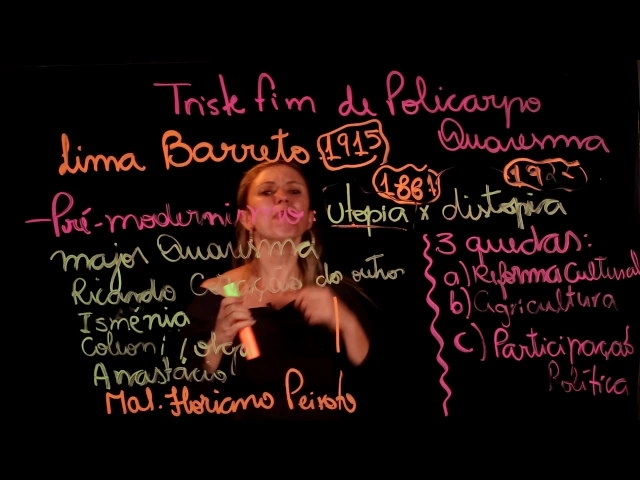 Triste fim de Policarpo
Quaresma
Lima Barreto 1915
1881 192
- Pré-modernismo: utopia x distopia
major Quaresma
Ricardo Coração do outros
Ismênia
Anastácio
Mal. Floriano Peixoto
3 quedas:
a) Reforma Cultural
b) Agricultura
c) Participação
Política